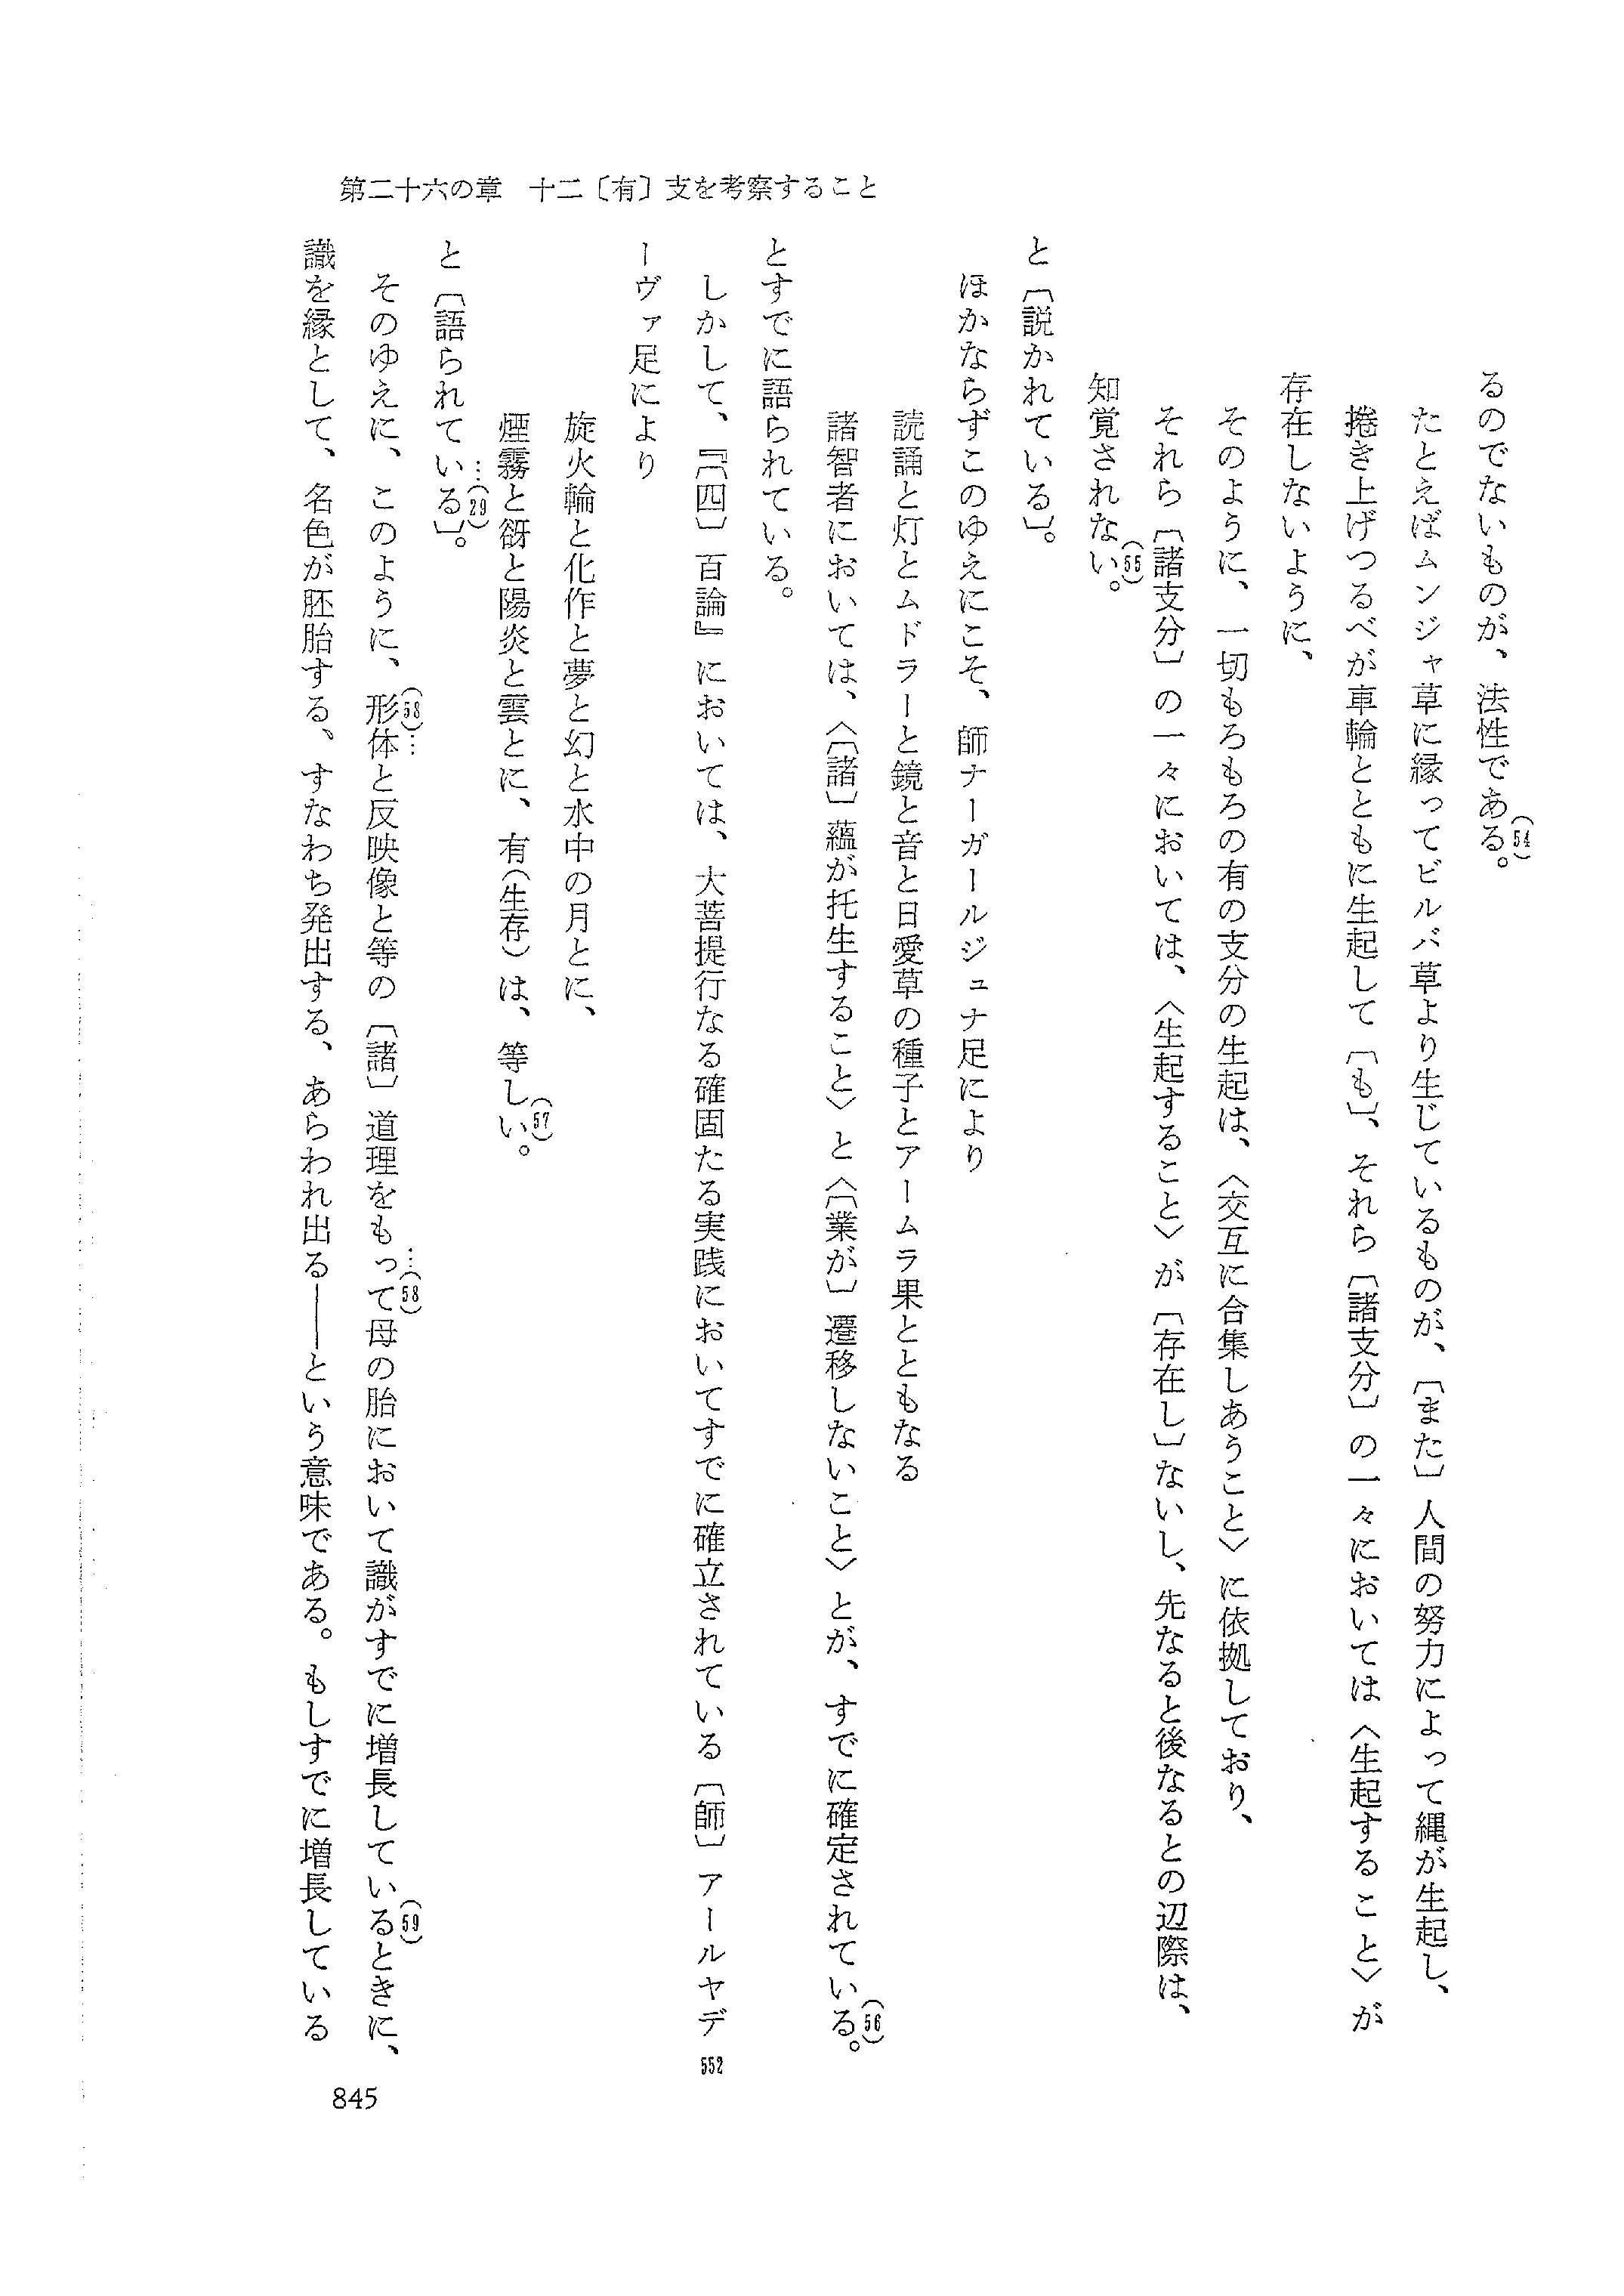 第二十六の章　十二〔有〕支を考察すること
るのでないものが、法性である。(54)
たとえばムンジャ草に縁ってビルバ草より生じているものが、〔また〕人間の努力によって縄が生起し、
捲き上げつるべが車輪とともに生起して〔も〕、それら〔諸支分〕の一々においては〈生起すること〉が
存在しないように、
そのように、一切もろもろの有の支分の生起は、〈交互に合集しあうこと〉に依拠しており、
それら〔諸支分〕の一々においては、〈生起すること〉が〔存在し〕ないし、先なると後なるとの辺際は、
知覚されない。(55)
と〔説かれている〕。
ほかならずこのゆえにこそ、師ナーガールジュナ足により
読誦と灯とムドラーと鏡と音と日愛草の種子とアームラ果とともなる
諸智者においては、〈〔諸〕蘊が托生すること〉と〈〔業が〕遷移しないこと〉とが、すでに確定されている。(56)
とすでに語られている。
しかして、『〔四〕百論』においては、大菩提行なる確固たる実践においてすでに確立されている〔師〕アールヤデ
552
ーヴァ足により
旋火輪と化作と夢と幻と水中の月とに、
煙霧と谺と陽炎と雲とに、有（生存）は、等しい。(57)
と〔語られている〕。…(29)
そのゆえに、このように、(58)…形体と反映像と等の〔諸〕道理をもって…(58)母の胎において識がすでに増長している(59)ときに、
識を縁として、名色が胚胎する、すなわち発出する、あらわれ出る――という意味である。もしすでに増長している
845